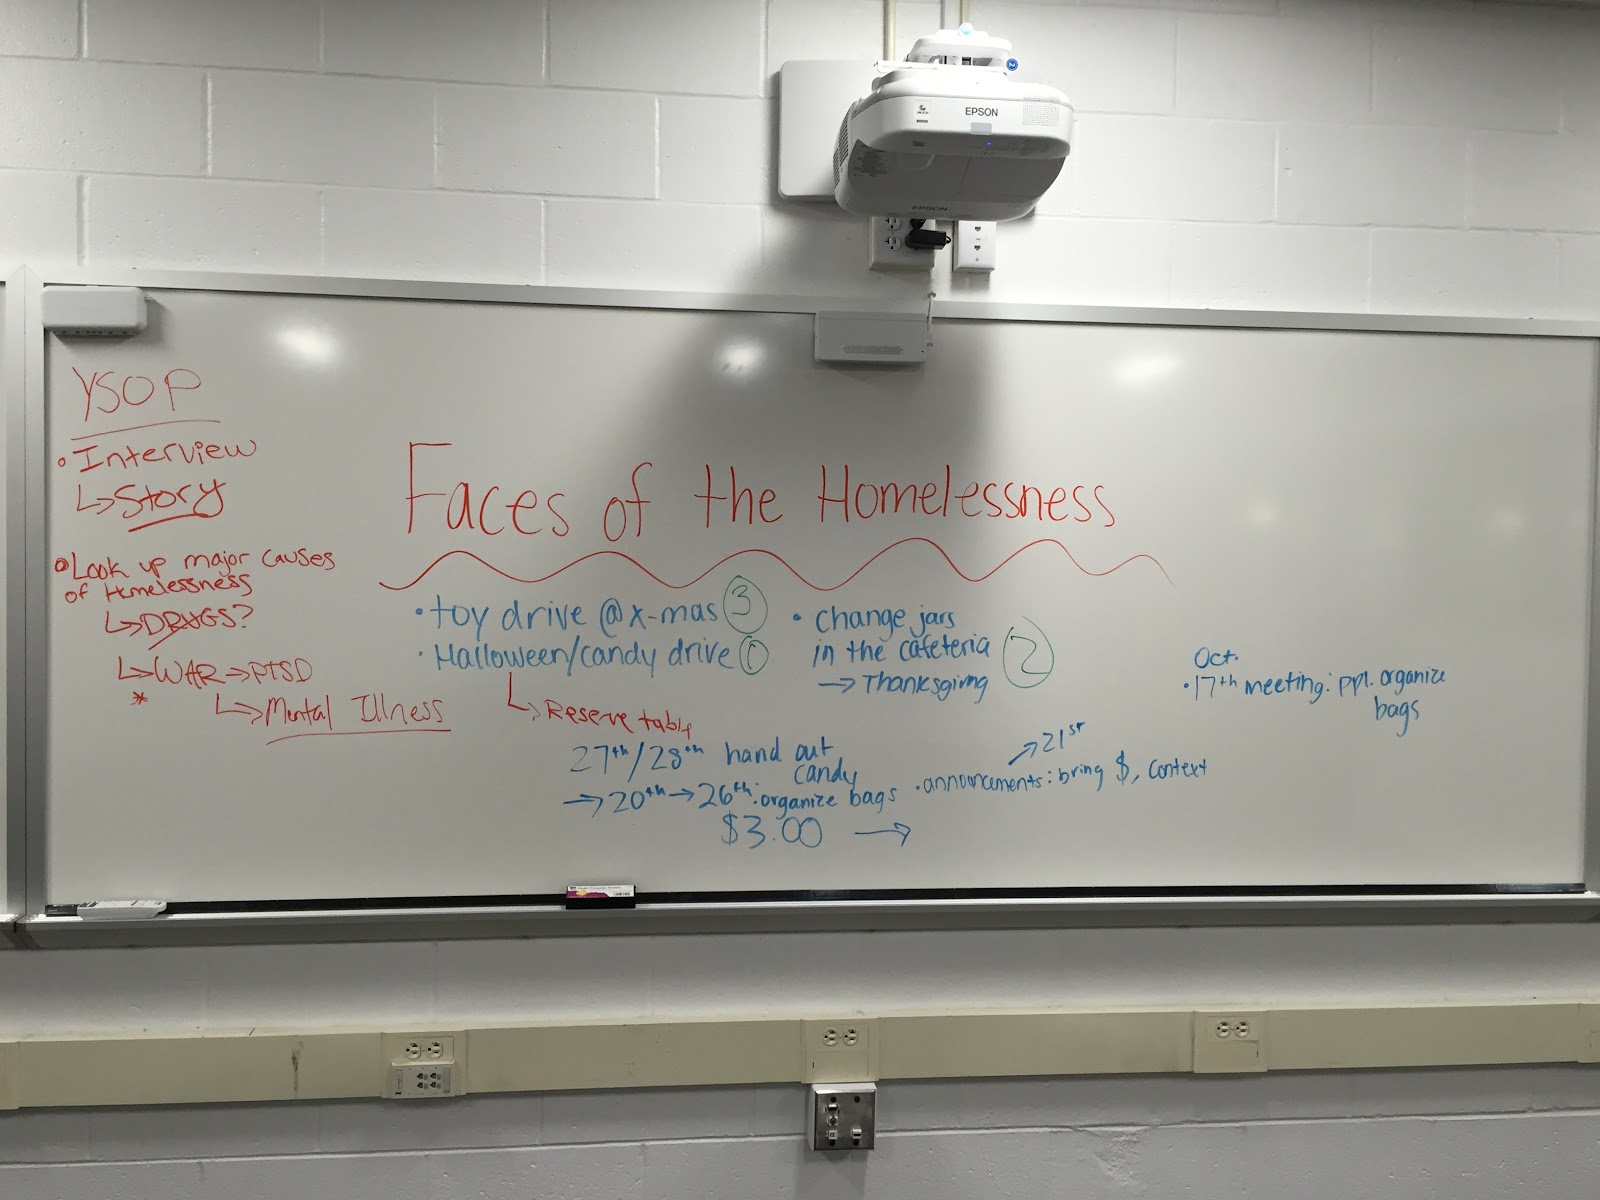 EPSON
EPSON
YSOP
• Interview
↳ Story
• Look up major causes
of Homelessness
↳ DRUGS?
↳ WAR → PTSD
*
↳ Mental Illness
Faces of the Homelessness
• toy drive @ x-mas 3
• Halloween/candy drive 1
↳ Reserve table
27th/28th hand out
candy
→ 20th → 26th: organize bags
$3.00 →
• change jars
in the cafeteria 2
→ Thanksgiving
→ 21st
• announcements: bring $, context
Oct.
• 17th meeting: ppl. organize
bags